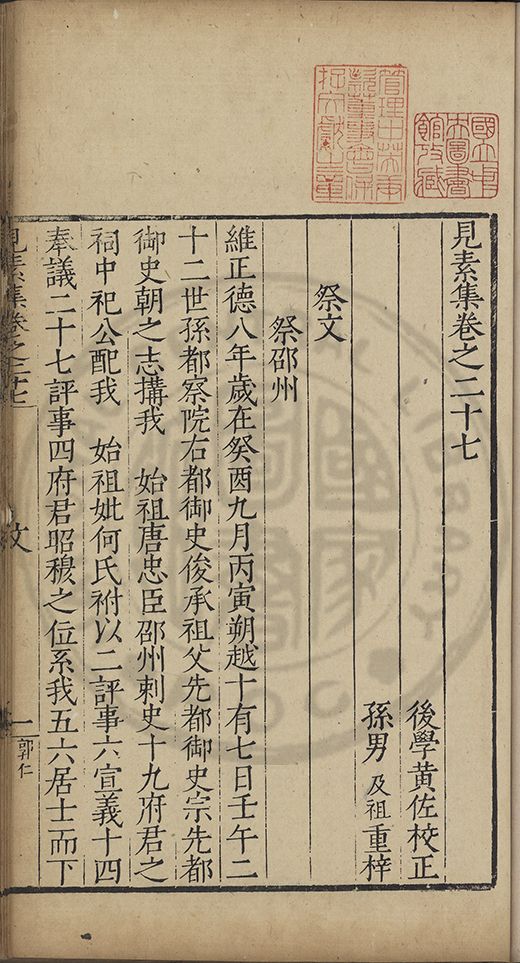 國立中
央圖書
館收藏
管理中英庚
款董事會保
存文獻之章
見素集卷之二十七
後學黃佐校正
孫男及祖重梓
祭文
祭邵州
維正德八年歲在癸酉九月丙寅朔越十有七日壬午二
十二世孫都察院右都御史俊承祖父先都御史宗先都
御史朝之志搆我 始祖唐忠臣邵州刺史十九府君之
祠中祀公配我 始祖妣何氏祔以二評事六宣義十四
奉議二十七評事四府君昭穆之位系我五六居士而下
見素集卷之二十七
文
一
郭仁